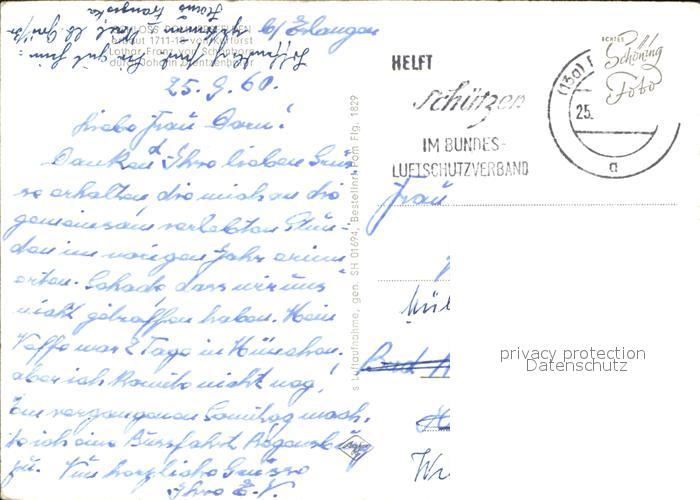 b/ Erlangen
SCHLOSS
erbaut 1711-18 von Kurfürst
Lothar Franz von Schönborn
durch Johann Dientzenhofer
25. 9. 60.
Liebe Frau Dorn!
Dankend Ihre lieben Grüs-
se erhalten die mich an die
gemeinsam verlebten Stun-
den im vorigen Jahr erinn
erten. Schade dass wir uns
nicht getroffen haben. Mein
Neffe war 2 Tage in München.
aber ich konnte nicht weg!
Am vergangenen Samstag mach-
te ich eine Busfahrt Regensburg
zu. Nun herzliche Grüsse
Ihre E. V.
s Luftaufnahme, gen. SH 01694, Bestellnr. Pom Flg. 1829
Agfa
HELFT
schützen
IM BUNDES-
LUFTSCHUTZVERBAND
(13a)
25.
a
ECHTES
Schöning
Foto
Frau
privacy protection
Datenschutz